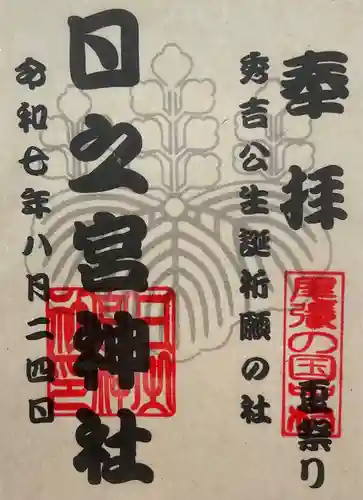 奉拝
尾張の国中村
祭り
秀吉公生誕祈願の社
日之宮神社
令和七年八月二四日